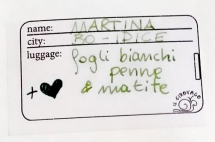 name: MARTINA
city: BO - IDICE
luggage: fogli bianchi
penne
+ & matite